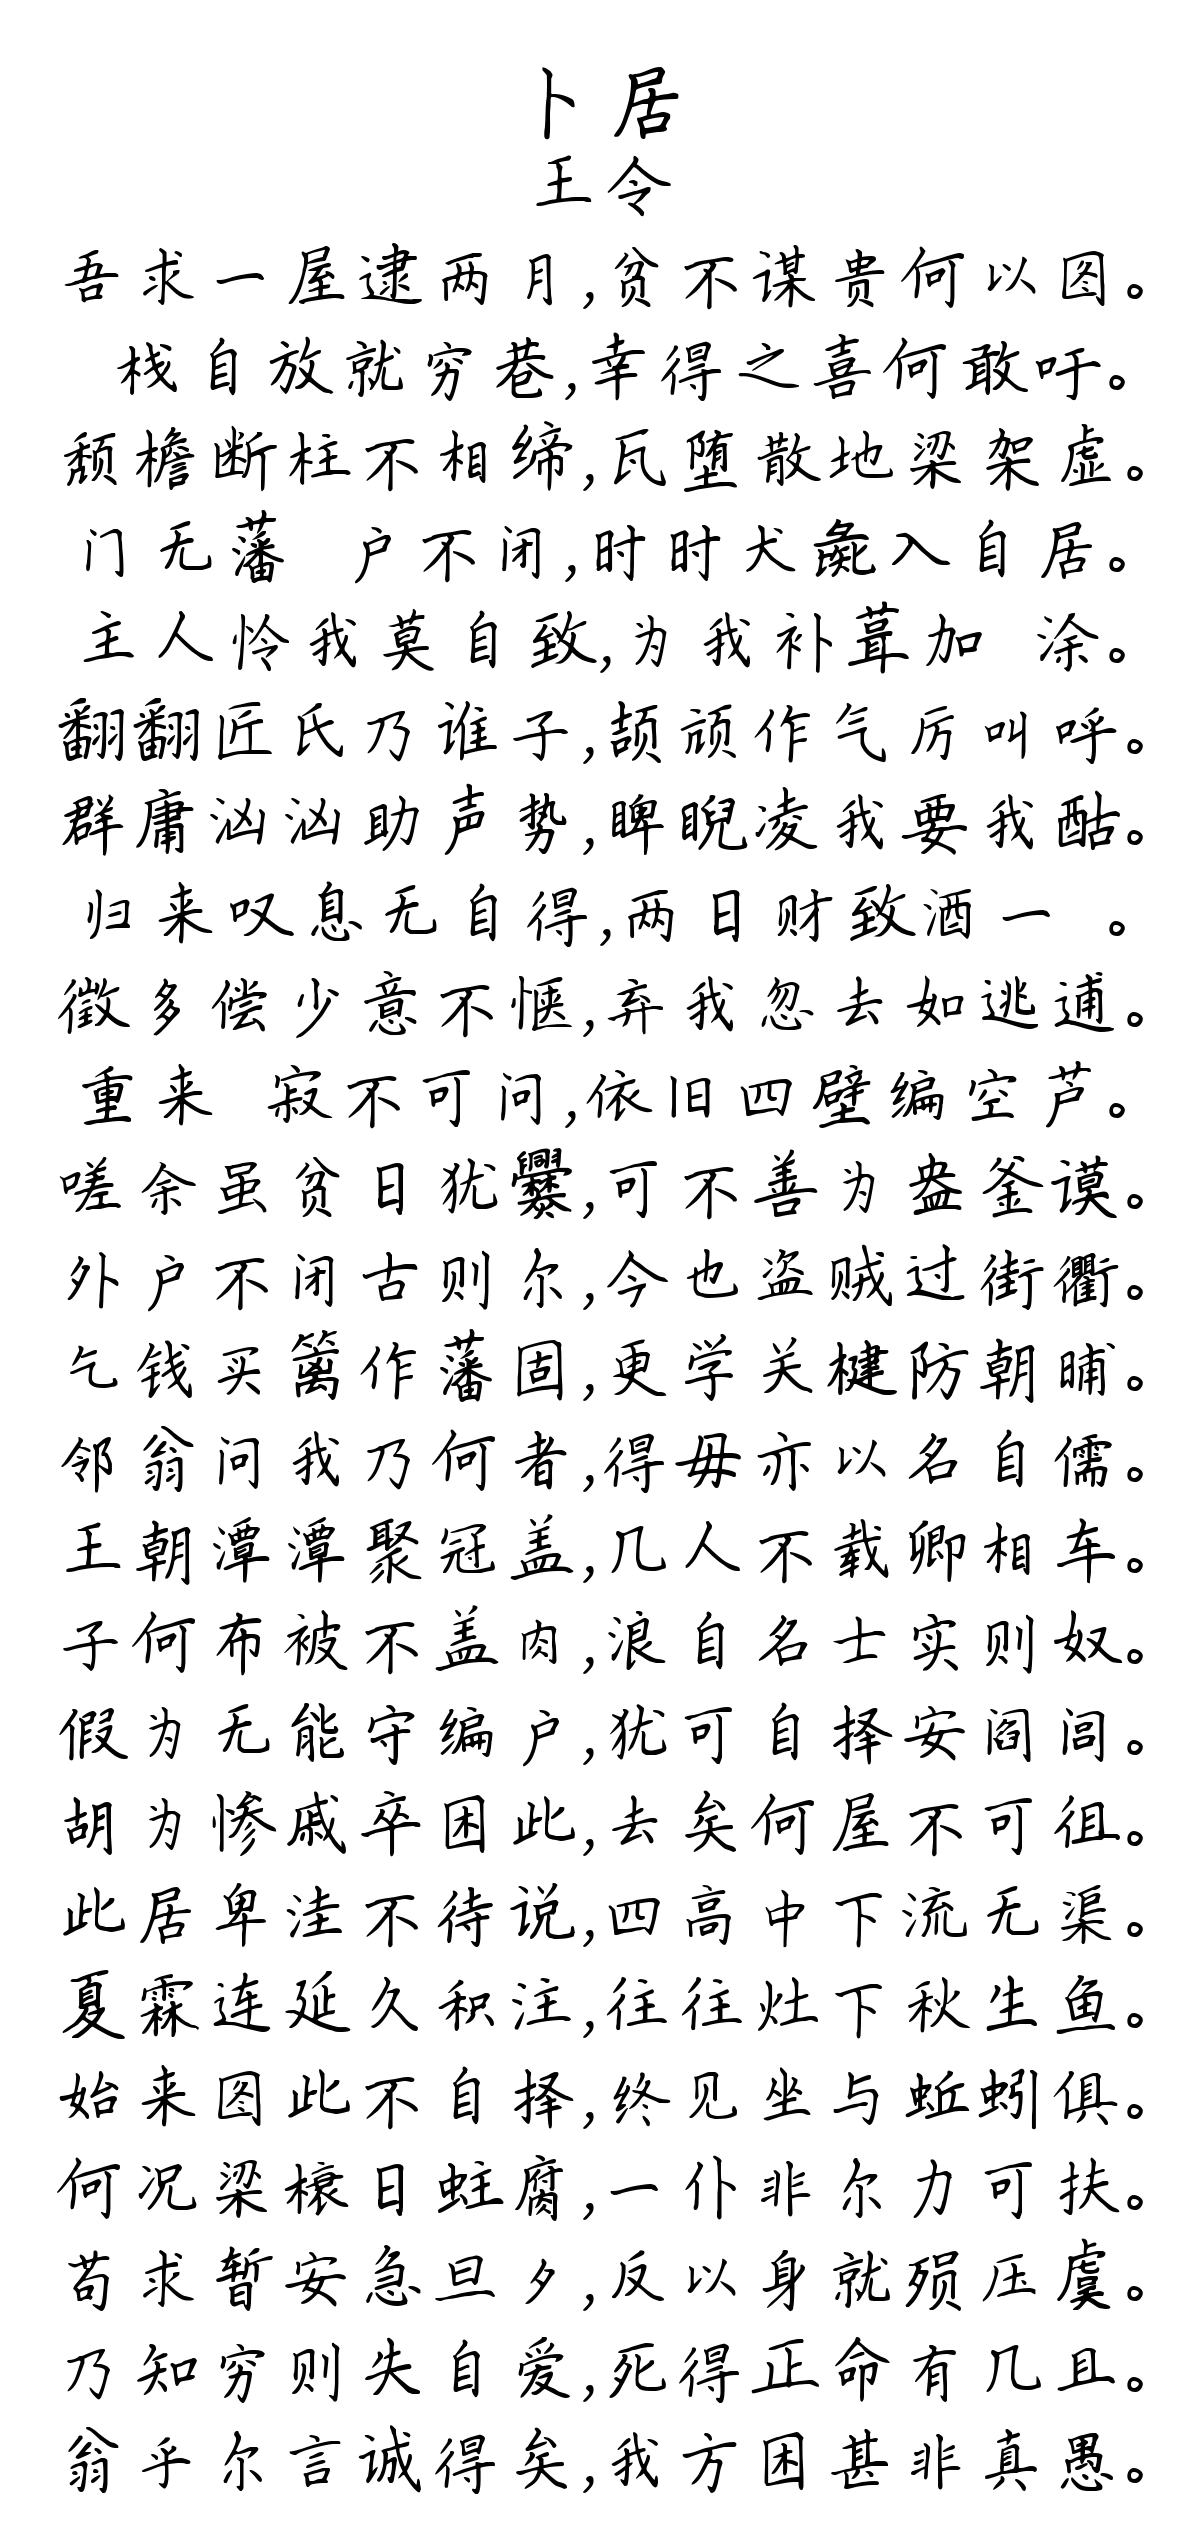 卜居
王令
吾求一屋逮两月,贫不谋贵何以图。
栈自放就穷巷,幸得之喜何敢吁。
颓檐断柱不相缔,瓦堕散地梁架虚。
门无藩 户不闭,时时犬彘入自居。
主人怜我莫自致,为我补葺加 涂。
翻翻匠氏乃谁子,颉顽作气厉叫呼。
群庸汹汹助声势,睥睨凌我要我酤。
归来叹息无自得,两日财致酒一 。
徵多偿少意不惬,弃我忽去如逃逋。
重来 寂不可问,依旧四壁编空芦。
嗟余虽贫日犹爨,可不善为盎釜谟。
外户不闭古则尔,今也盗贼过街衢。
乞钱买篱作藩固,更学关楗防朝晡。
邻翁问我乃何者,得毋亦以名自儒。
王朝潭潭聚冠盖,几人不载卿相车。
子何布被不盖肉,浪自名士实则奴。
假为无能守编户,犹可自择安阎闾。
胡为惨戚卒困此,去矣何屋不可徂。
此居卑洼不待说,四高中下流无渠。
夏霖连延久积注,往往灶下秋生鱼。
始来图此不自择,终见坐与蚯蚓俱。
何况梁榱日蛀腐,一仆非尔力可扶。
苟求暂安急旦夕,反以身就殒压虞。
乃知穷则失自爱,死得正命有几且。
翁乎尔言诚得矣,我方困甚非真愚。